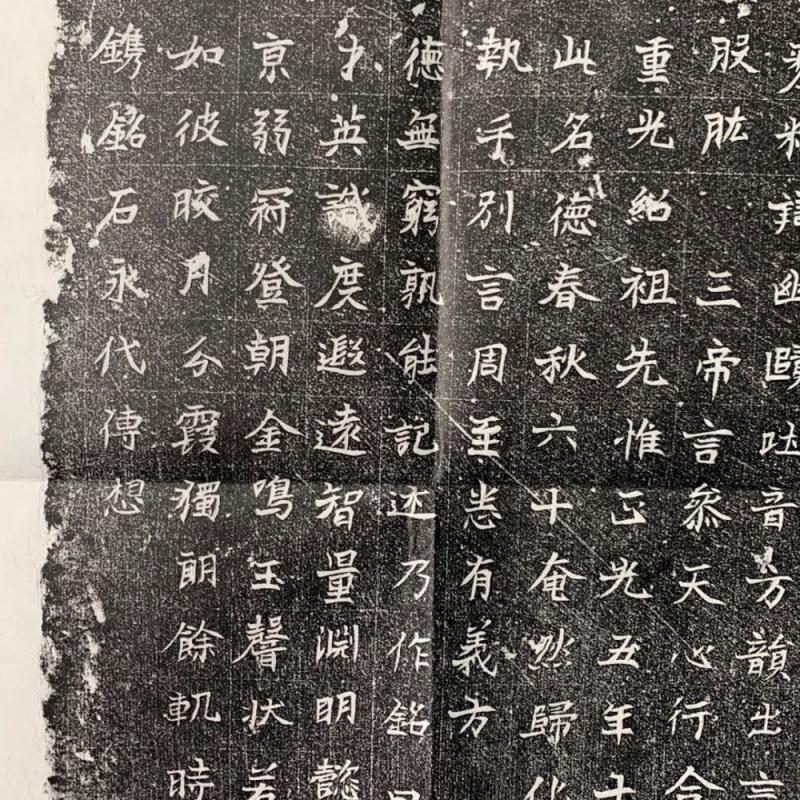 精 幽賾吐音芳韻出言
股肱 三帝言忝天心行合
重光紹祖先惟正光五年十
此名德春秋六十奄然歸化
執手別言周至悉有義方
德無窮孰能記述乃作銘曰
英識度遐遠智量淵明懿
京弱冠登朝金鳴玉聲狀若
如彼皎月分霞獨朗餘軌時
鐫銘石永代傳想